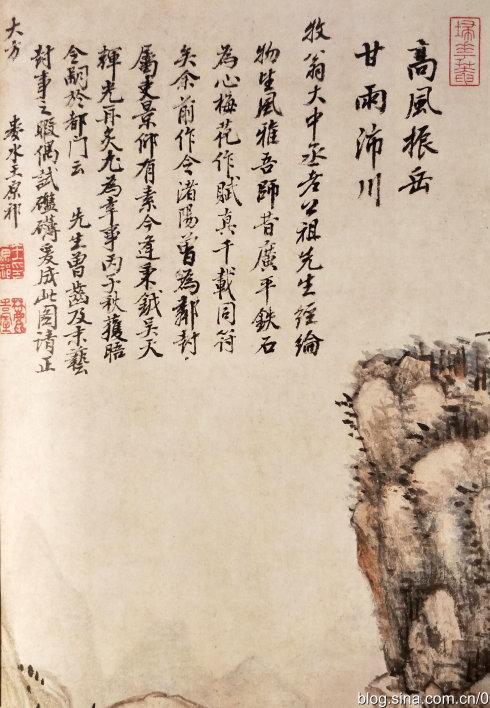 高風振岳
甘雨沛川
牧翁大中丞老公祖先生經綸
物望風雅吾師昔廣平鉄石
為心梅花作賦真千載同符
矣余前作令渚陽曾為鄰封
屬吏景仰有素今逢秉鉞吳天
輝光再炙尤為幸事丙子秋獲晤
令嗣於都門云先生曾齒及末藝
封事之暇偶試礬礴爰成此圖請正
大方
婁水王原祁
掃葉齋
blog.sina.com.cn/0